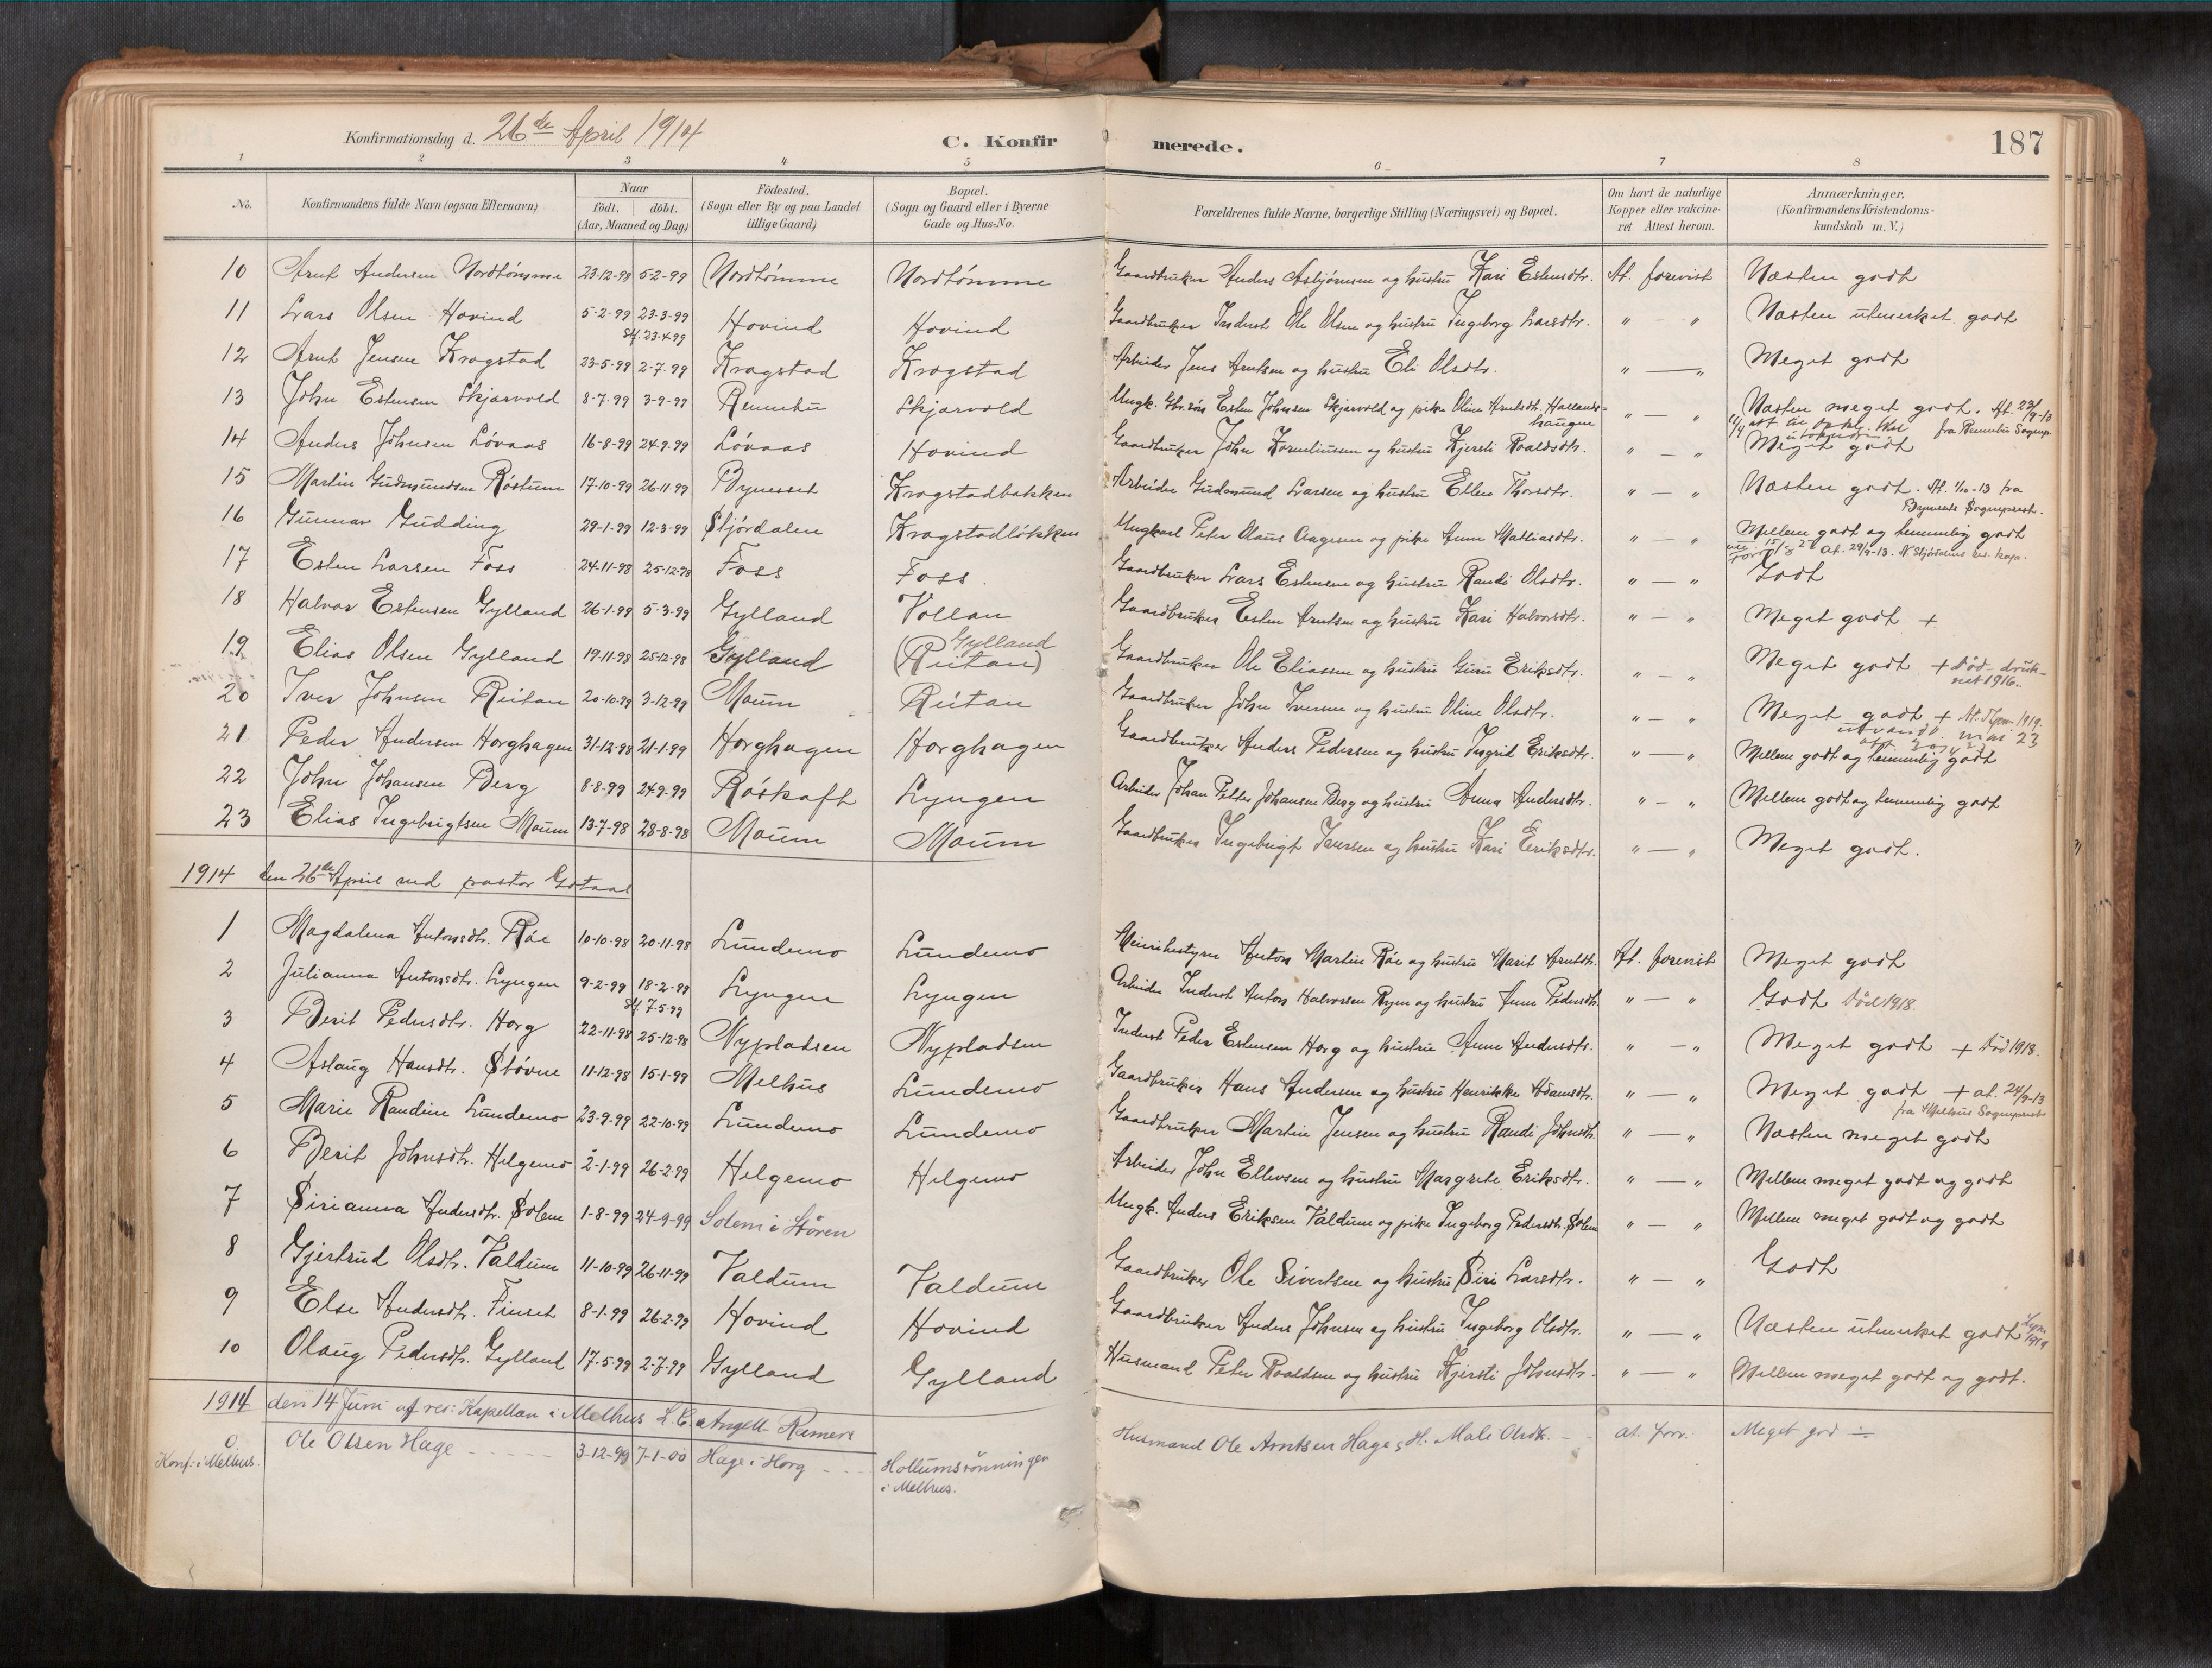 Konfirmationsdag d. 26de April 1914
C. Konfirmerede.
187
1 2 3 4 5 6 7 8
No.
Konfirmandens fulde Navn (ogsaa Efternavn)
Naar
födt. döbt.
(Aar, Maaned og Dag)
Födested.
(Sogn eller By og paa Landet
tillige Gaard)
Bopæl.
(Sogn og Gaard eller i Byerne
Gade og Hus-No.
Forældrenes fulde Navne, borgerlige Stilling (Næringsvei) og Bopæl.
Om havt de naturlige
Kopper eller vakcine-
ret Attest herom.
Anmærkninger.
(Konfirmandens Kristendoms-
kundskab m. V.)
10 Arnt Andersen Nordtømme 23-12-98 5-2-99 Nordtømme Nordtømme Gaardbruker Anders Asbjørnsen og hustru Kari Estensdtr. At. forevist Næsten godt
11 Lars Olsen Hovind 5-2-99 23-3-99 Hovind Hovind Gaardbruker Inderst Ole Olsen og hustru Ingeborg Larsdtr. " - " Næsten utmerket godt
st. 23-4-99
12 Arnt Jensen Krogstad 23-5-99 2-7-99 Krogstad Krogstad Arbeider Jens Arntsen og hustru Eli Olsdtr. " — " Meget godt
13 John Estensen Skjærvold 8-7-99 3-9-99 Rennebu Skjærvold Ungk. Gbr.søn Esten Johnsen Skjærvold og pike Oline Arntsdtr. Hallands- " — " Næsten meget godt. At. 23/9-13
haugen
fra Rennebu Sognep.
14 Anders Johnsen Løvaas 16-8-99 24-9-99 Løvaas Hovind Gaardbruker John Korneliussen og hustru Kjersti Roaldsdtr. " — " Meget godt
15 Martin Gudmundsen Røstum 17-10-99 26-11-99 Bynesset Krogstadbakken Arbeider Gudmund Larsen og hustru Ellen Thorsdtr. " — " Næsten godt. At. 1/10-13 fra
Bynesets Sogneprest.
16 Gunnar Gudding 29-1-99 12-3-99 Stjørdalen Krogstadløkken Ungkarl Peter Olaus Aagesen og pike Anne Mattiasdtr. " — " Mellem godt og temmelig godt
At. 29/9-13. N. Stjørdalens res. kap.
17 Esten Larsen Foss 24-11-98 25-12-98 Foss Foss. Gaardbruker Lars Estensen og hustru Randi Olsdtr. " — " Godt
18 Halvor Estensen Gylland 26-1-99 5-3-99 Gylland Vollan Gaardbruker Esten Arntsen og hustru Kari Halvorsdtr. " — " Meget godt +
19 Elias Olsen Gylland 19-11-98 25-12-98 Gylland Gylland (Rutan) Gaardbruker Ole Eliassen og hustru Guru Eriksdtr. " — " Meget godt + Død-druk-
net 1916.
20 Iver Johnsen Rutan 20-10-99 3-12-99 Moum Rutan Gaardbruker John Iversen og hustru Oline Olsdtr. " — " Meget godt +
21 Peder Andersen Horghagen 31-12-98 21-1-99 Horghagen Horghagen Gaardbruker Anders Pedersen og hustru Ingrid Eriksdtr. " — " Mellem godt og temmelig godt
22 John Johansen Berg 8-8-99 24-9-99 Røskaft Lyngen Arbeider Johan Petter Johansen Berg og hustru Anna Andersdtr. " — " Mellem godt og temmelig godt
23 Elias Ingebrigtsen Moum 13-7-98 28-8-98 Moum Moum Gaardbruker Ingebrigt Iversen og hustru Kari Eriksdtr. " — " Meget godt.
1914 den 26de April ved pastor
1 Magdalena Antonsdtr. Røe 10-10-98 20-11-98 Lundemo Lundemo Meieribestyrer Anton Martin Røe og hustru Marit Arntsdtr. At. forevist Meget godt
2 Julianna Antonsdtr. Lyngen 9-2-99 18-2-99 Lyngen Lyngen Arbeider Inderst Anton Halvorsen Ryen og hustru Anne Pedersdtr. " — " Godt Død 1918.
st. 7-5-99
3 Berit Pedersdtr. Horg 22-11-98 25-12-98 Nypladsen Nypladsen Inderst Peder Estensen Horg og hustru Anne Andersdtr. " — " Meget godt + Død 1918.
4 Aslaug Hansdtr. Støvne 11-12-98 15-1-99 Melhus Lundemo Gaardbruker Hans Andersen og hustru Henrikke Adamsdtr. " — " Meget godt + at. 24/9-13
fra Melhus Sogneprest
5 Marie Randine Lundemo 23-9-99 22-10-99 Lundemo Lundemo Gaardbruker Martin Jensen og hustru Randi Johnsdtr. " — " Næsten meget godt
6 Berit Johnsdtr. Helgemo 2-1-99 26-2-99 Helgemo Helgemo Arbeider John Ellevsen og hustru Margrete Eriksdtr. " — " Mellem meget godt og godt
7 Sirianna Andersdtr. Solem 1-8-99 24-9-99 Solem i Støren Ungk. Anders Eriksen Valdum og pike Ingeborg Pedersdtr. Solem " — " Mellem meget godt og godt
8 Gjertrud Olsdtr. Valdum 11-10-99 26-11-99 Valdum Valdum Gaardbruker Ole Sivertsen og hustru Siri Larsdtr. " — " Godt
9 Else Andersdtr. Finset 8-1-99 26-2-99 Hovind Hovind Gaardbruker Anders Johnsen og hustru Ingeborg Olsdtr. " — " Næsten utmerket godt
10 Olaug Pedersdtr. Gylland 17-5-99 2-7-99 Gylland Gylland Husmand Peter Roaldsen og hustru Kjersti Johnsdtr. " — " Mellem meget godt og godt.
1914 den 14 Juni af res: Kapellan i Melhus L. C. Angell
0 Ole Olsen Hage 3-12-99 7-1-00 Hage i Horg Hollumsrønningen Husmand Ole Arntsen Hage & H. Mali Olsdt. at. forv. Meget god ÷
Konf: i Melhus. i Melhus.